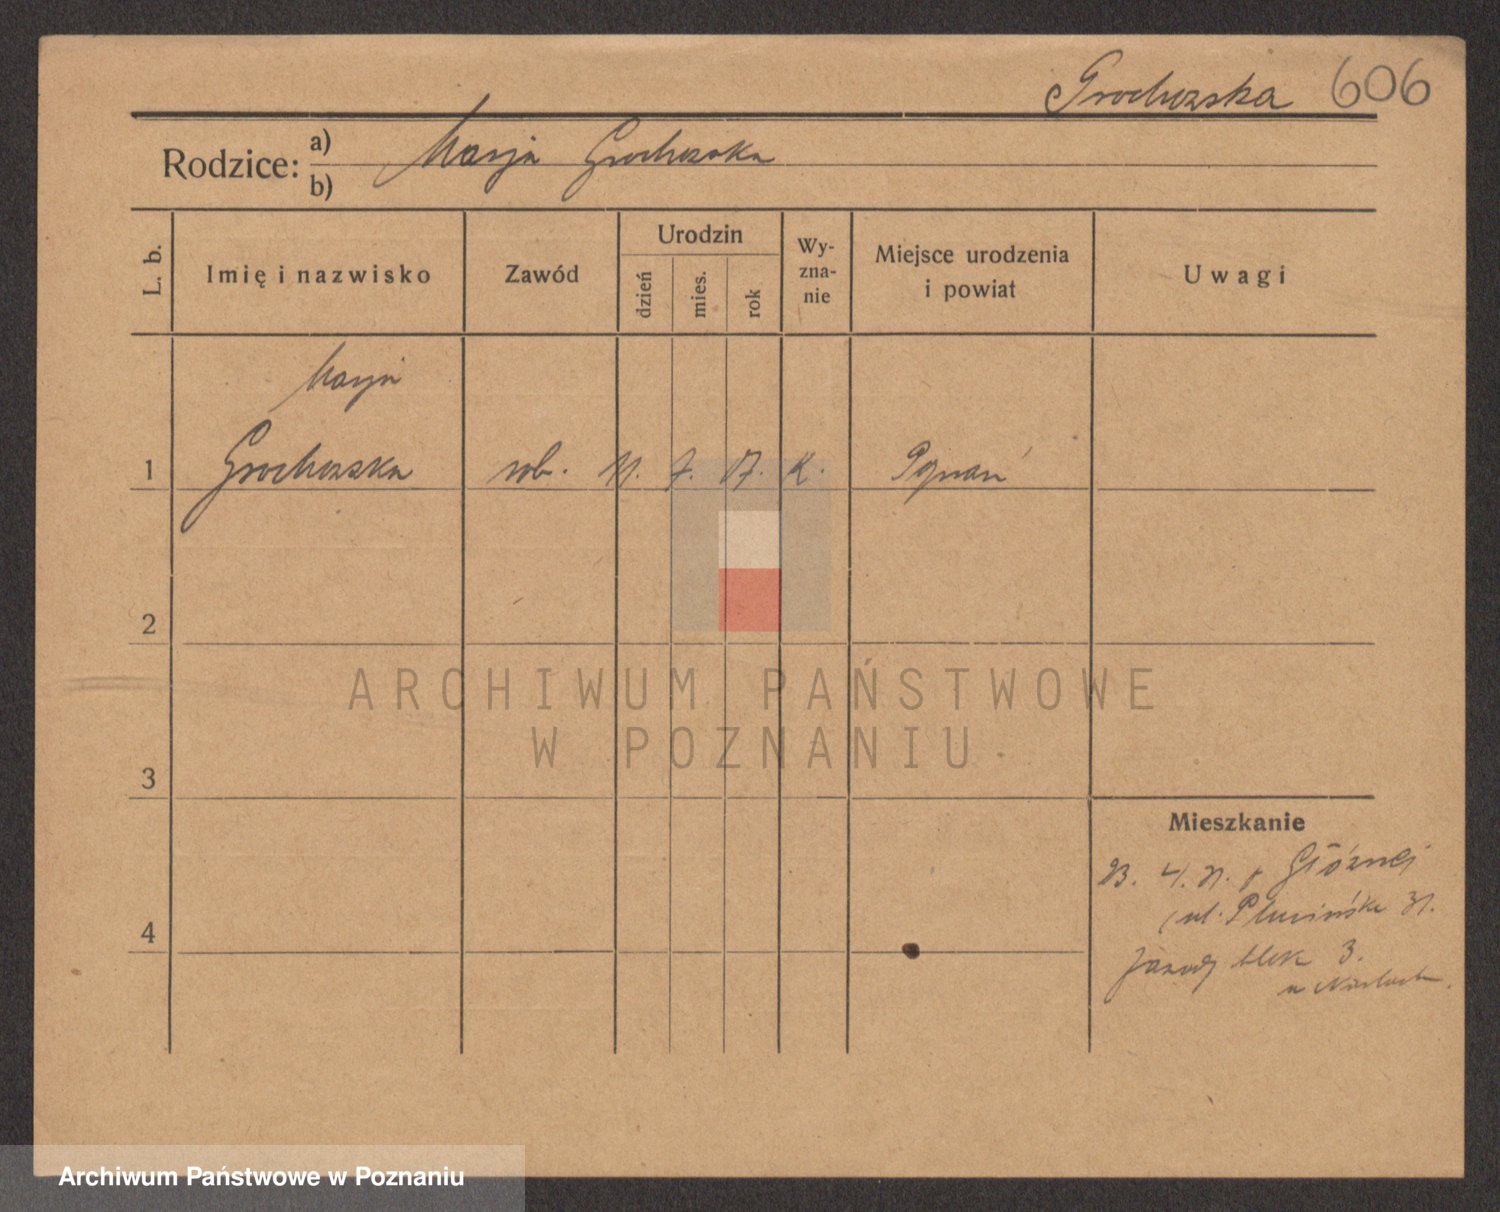 Grochowska 606
Rodzice: a) Marja Grochowska
b)
L. b. Imię i nazwisko Zawód Urodzin dzień mies. rok Wyznanie Miejsce urodzenia i powiat Uwagi
Marja
1 Grochowska rob. 11. 7. 17. K. Poznań
2
ARCHIWUM PAŃSTWOWE
W POZNANIU
3
Mieszkanie
23. 4. 31.
ul. 31.
4
blok 3.
Archiwum Państwowe w Poznaniu